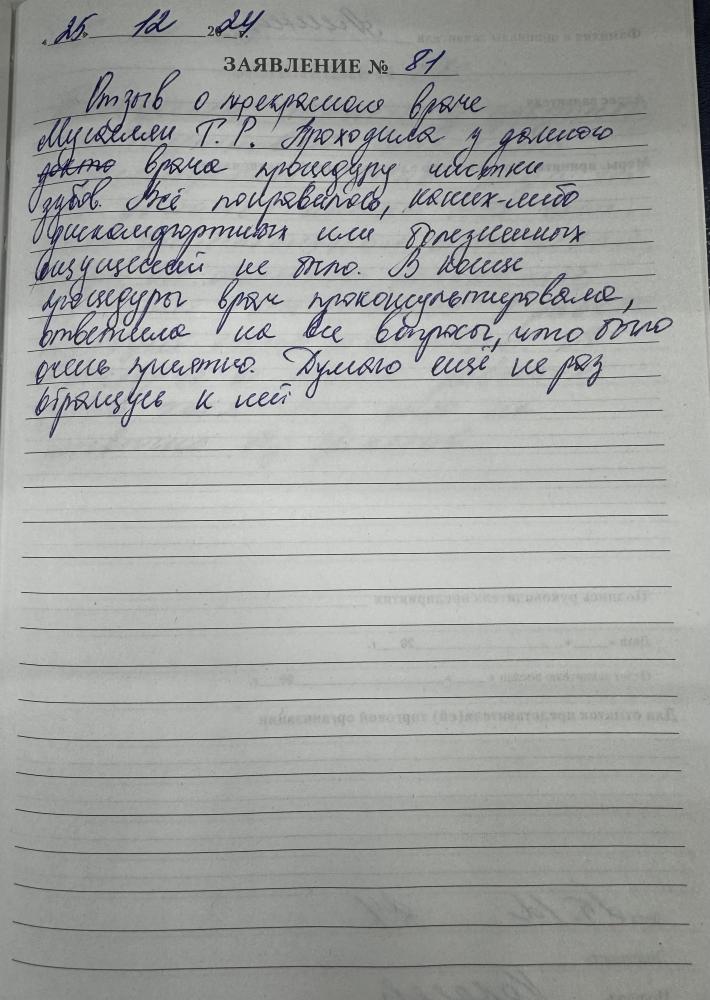 «25» 12 2024 г.
ЗАЯВЛЕНИЕ № 81
Отзыв о прекрасном враче
Мусаелян Т. Р. Проходила у данного
врача процедуру чистки
зубов. Всё понравилось, каких-либо
дискомфортных или болезненных
ощущений не было. В конце
процедуры врач проконсультировала,
ответила на все вопросы, что было
очень приятно. Думаю ещё не раз
обращусь к ней